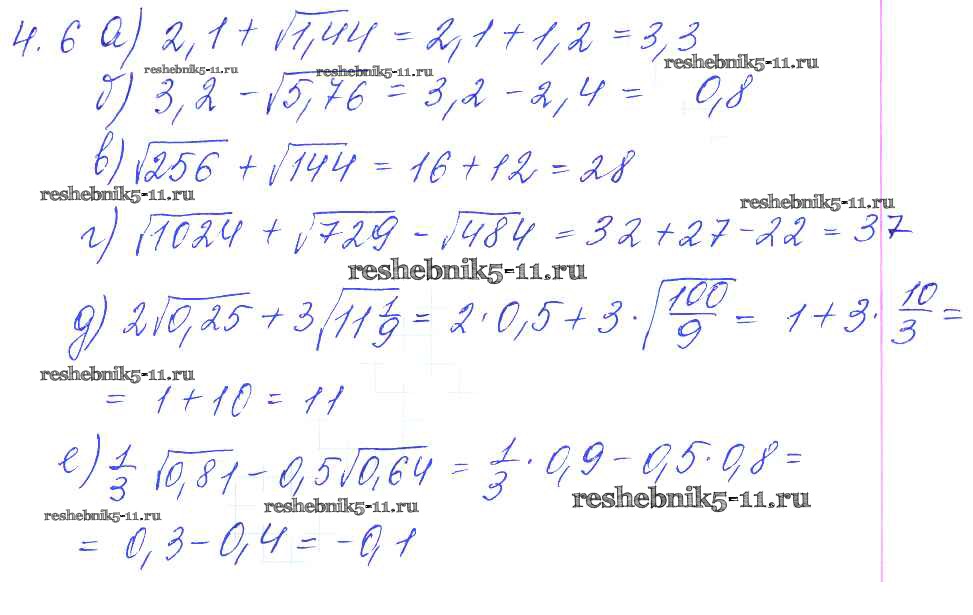 4.6 а) 2,1 + √1,44 = 2,1 + 1,2 = 3,3
reshebnik5-11.ru reshebnik5-11.ru reshebnik5-11.ru
б) 3,2 - √5,76 = 3,2 - 2,4 = 0,8
в) √256 + √144 = 16 + 12 = 28
reshebnik5-11.ru reshebnik5-11.ru
г) √1024 + √729 - √484 = 32 + 27 - 22 = 37
reshebnik5-11.ru
д) 2√0,25 + 3√11 1/9 = 2·0,5 + 3·√100/9 = 1 + 3·10/3 =
reshebnik5-11.ru
= 1 + 10 = 11
е) 1/3 √0,81 - 0,5√0,64 = 1/3 · 0,9 - 0,5·0,8 =
reshebnik5-11.ru reshebnik5-11.ru reshebnik5-11.ru
= 0,3 - 0,4 = -0,1